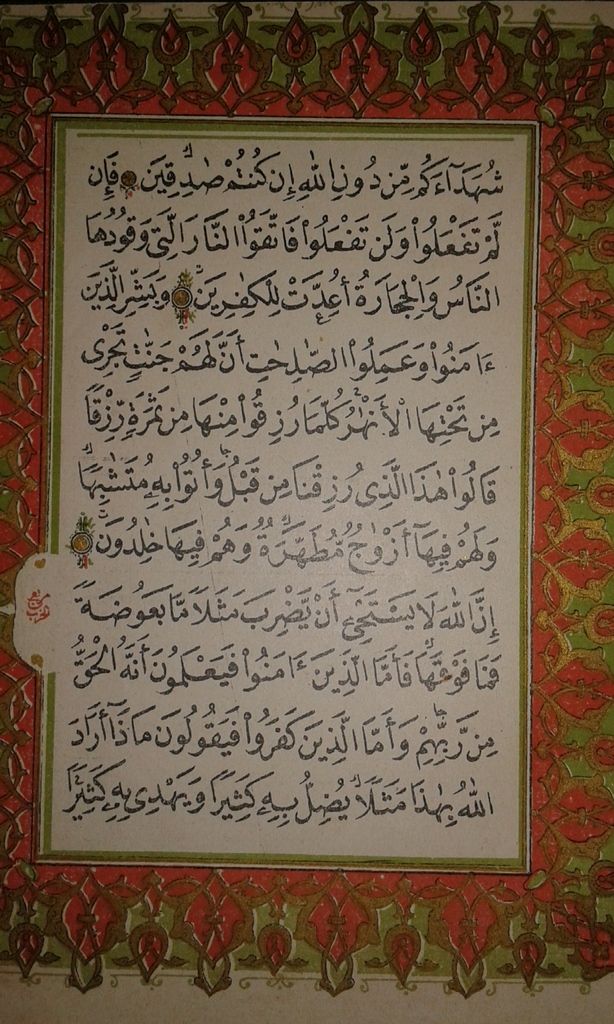 شُهَدَآءَكُم مِّن دُونِ اللهِ إِن كُنتُمْ صَٰدِقِينَ فَإِن
لَّمْ تَفْعَلُواْ وَلَن تَفْعَلُواْ فَاتَّقُواْ النَّارَ الَّتِي وَقُودُهَا
النَّاسُ وَالْحِجَارَةُ أُعِدَّتْ لِلْكَٰفِرِينَ وَبَشِّرِ الَّذِينَ
ءَامَنُواْ وَعَمِلُواْ الصَّٰلِحَٰتِ أَنَّ لَهُمْ جَنَّٰتٍ تَجْرِى
مِن تَحْتِهَا الْأَنْهَٰرُ كُلَّمَا رُزِقُواْ مِنْهَا مِن ثَمَرَةٍ رِّزْقًا
قَالُواْ هَٰذَا الَّذِى رُزِقْنَا مِن قَبْلُ وَأُتُواْ بِهِ مُتَشَٰبِهًا
وَلَهُمْ فِيهَآ أَزْوَٰجٌ مُّطَهَّرَةٌ وَهُمْ فِيهَا خَٰلِدُونَ
إِنَّ اللهَ لَا يَسْتَحْىِۦٓ أَنْ يَّضْرِبَ مَثَلًا مَّا بَعُوضَةً
فَمَا فَوْقَهَا فَأَمَّا الَّذِينَ ءَامَنُواْ فَيَعْلَمُونَ أَنَّهُ الْحَقُّ
مِن رَّبِّهِمْ وَأَمَّا الَّذِينَ كَفَرُواْ فَيَقُولُونَ مَاذَآ أَرَادَ
اللهُ بِهَٰذَا مَثَلًا يُضِلُّ بِهِ كَثِيرًا وَيَهْدِى بِهِ كَثِيرًا